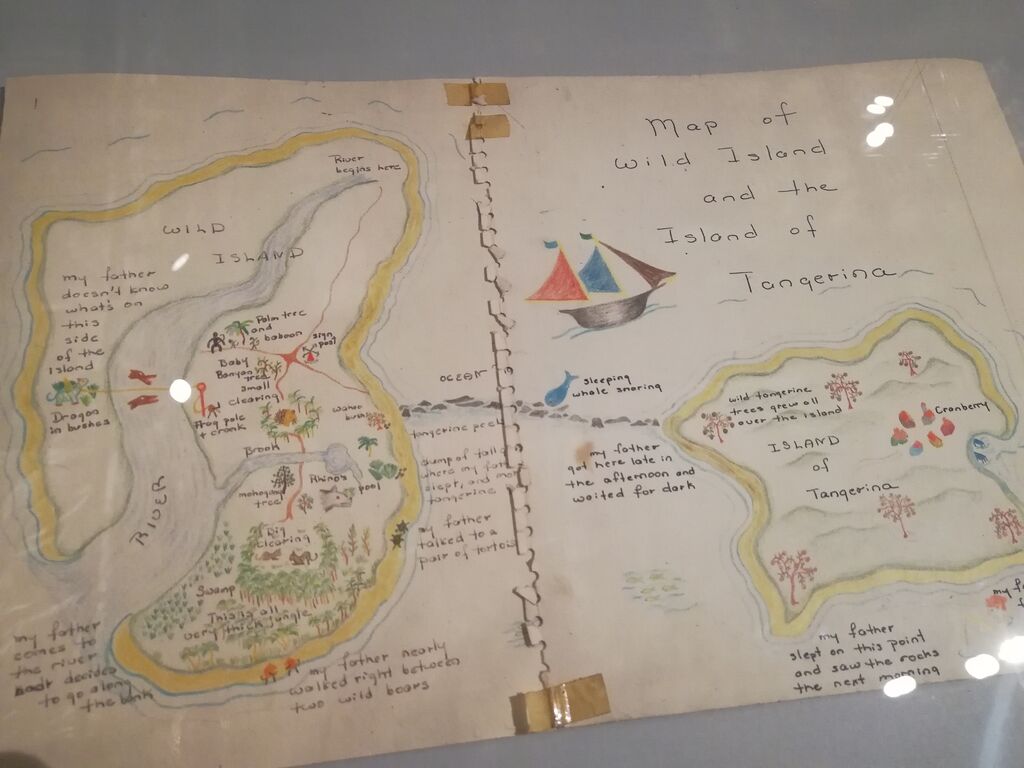 Map of
Wild Island
and the
Island of
Tangerina
River
begins here
WILD
ISLAND
my father
doesn't know
what's on
this
side
of the
Island
Dragon
in bushes
Palm tree
and
baboon
sign
post
Baby
Banyan
tree
small
clearing
pole
+ crank
wahoo
bush
Brook
mahogany
tree
Rhino's
pool
RIVER
Big
clearing
Swamp
This is all
very thick jungle
OCEAN
sleeping
whale snoring
tangerine peel
my father
talked to a
pair of tortois
my father nearly
walked right between
two wild boars
my father
comes to
the river
and decides
to go along
the bank
my father
got here late in
the afternoon and
waited for dark
wild tangerine
trees grew all
over the island
Cranberry
ISLAND
of
Tangerina
my father
slept on this point
and saw the rocks
the next morning